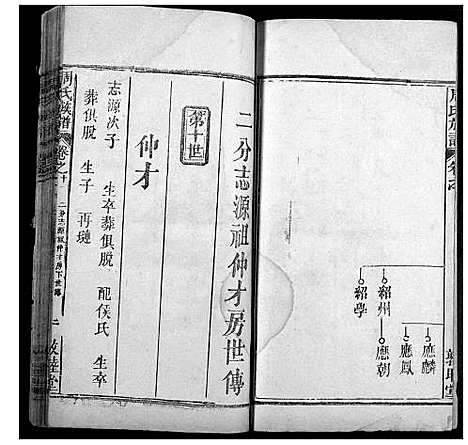 周氏族譜
應麟
應鳳
應朝
紹州
紹學
二分志源祖仲才房世傳
第十世
仲才
志源次子 生卒葬俱脫 配侯氏 生卒
葬俱脫 生子 再璉
周氏族譜
卷之十
二分志源祖仲才房下世傳
二
敦睦堂